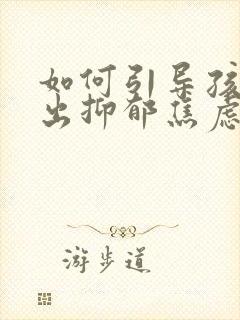 如何引导孩
出抑郁焦虑
游步道